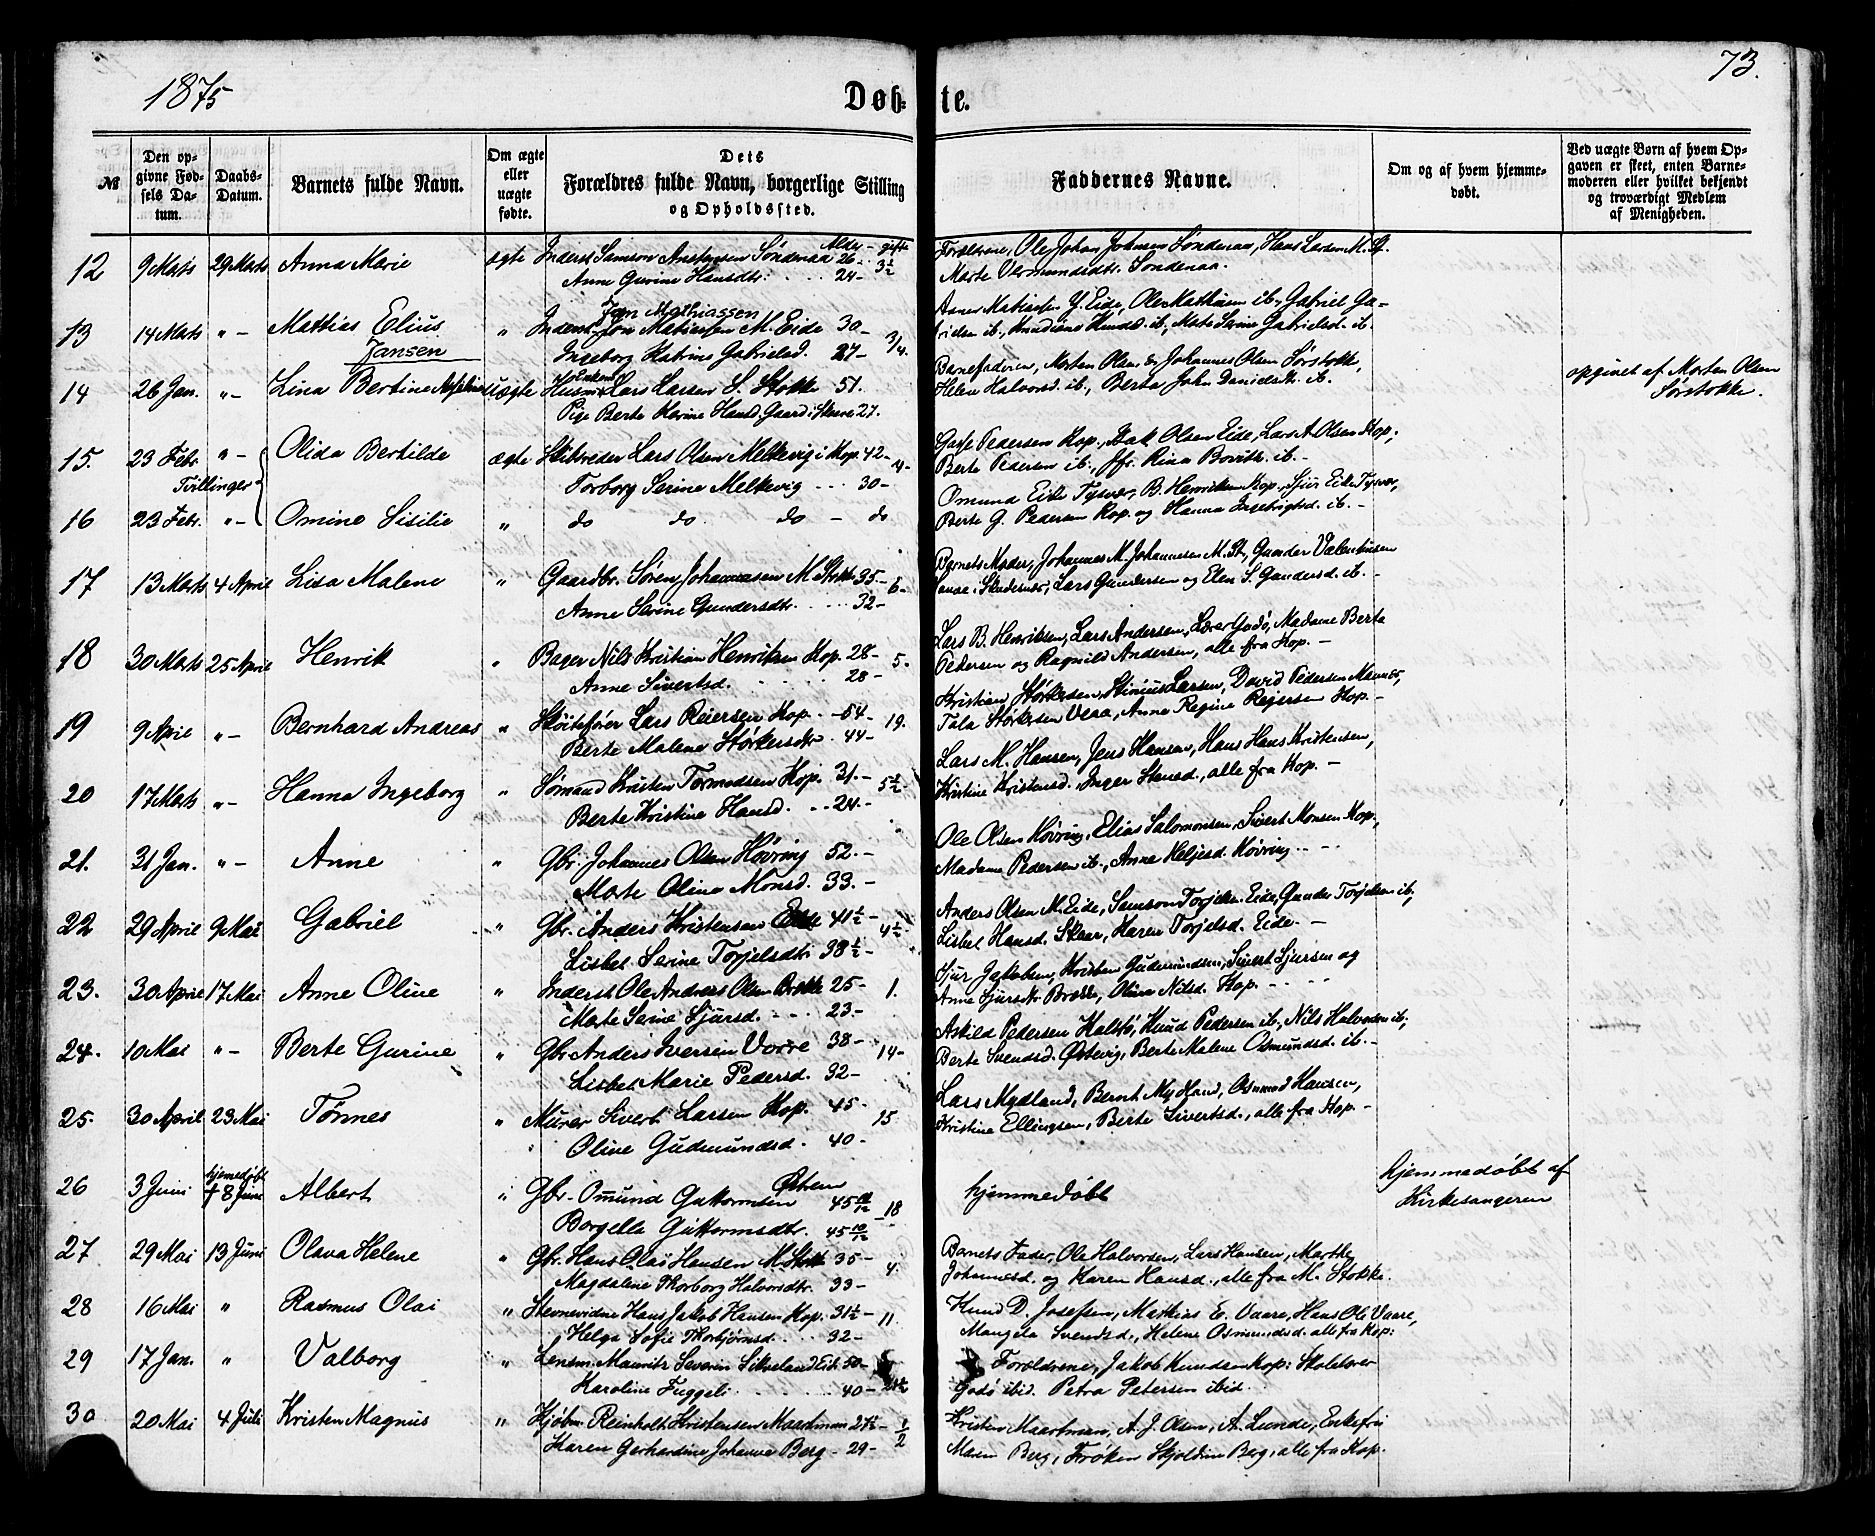 1875
Døbte.
73.
№
Den opgivne Fødsels Datum.
Daabs-Datum.
Barnets fulde Navn.
Om ægte eller uægte fødte.
Dets Forældres fulde Navn, borgerlige Stilling og Opholdssted.
Faddernes Navne.
Om og af hvem hjemmedøbt.
Ved uægte Børn af hvem Opgaven er skeet, enten Barnemoderen eller hvilket bekjendt og troværdigt Medlem af Menigheden.
Alder - gift
12 9 Mats 29 Mats Anna Marie ægte Inderst Samson Anstensen Søndenaa 26 - 3½ Forældrene, Ole Johan Johnsen Søndenaa, Hans Larsen M. St.
Anne Gurine Hansdtr. 24 - Marte Vermundsdtr. Søndenaa.
Jan Mathiassen
13 14 Mats " - Mattias Elius " Inderst Jon Matiasen M. Eide 30 - 3/4. Eide, Ole Mathiasen ib., Gabriel Ga-
Jansen Ingeborg Katrine Gabrielsd. 27 - Knudsd. ib., Marte Serine Gabrielsd. ib.
14 26 Jan. " - Lina Bertine uægte Enkem. Husm. Lars Larsen S. Stokke 51. Barnefaderen, Morten Olsen & Johannes Olsen Sørstokke, opgivet af Morten Olsen
Pige Berte Karine Hansd. 27. Helene Halvorsd. ib., Berta John Danielsdtr. ib. Sørstokke.
15. 23 Febr. " - Olida Bertilde ægte Lars Olsen Melkevig i Kop. 42 - 4 - Pedersen Kop., Olsen Eide, Lars A. Olsen Kop.,
Tvillinger Torborg Serine Melkevig 30 - Berte Pedersen ib., Jfr. Rina ib. -
16 23 Febr. " - Omine Sisilie " do do do - do Omund Eide Tysvær, B. Henriksen Kop., Sjur Eide Tysvær,
Berte G. Pedersen Kop. og Hanna ib. -
17 13 Mats 4 April Lisa Malene " Gaardbr. Søren Johannesen M. Stokke 35 - 6 - Barnets Moder, Johannes M. Johannesen M. St., Gunder Valentinsen
Anne Serine Gundersdtr. 32 - Lars Gundersen og Elen S. Gundersd. ib. -
18 30 Mats 25 April Henrik " Bager Nils Kristian Henriksen Kop. 28 - 5. Lars B. Henriksen, Lars Andersen, Lærer Godø, Madame Berte
Anne Sivertsd. 28 - Pedersen og Ragnild Andersen, alle fra Kop. -
19 9 April " - Bernhard Andreas " Skøitefører Lars Reiersen Kop. - 54 - 19. Kristian Størkersen, Stinius Larsen, David Pedersen
Berte Malene Størkersdtr. 44 - Tala Størkersen Veaa, Anne Regine Rejersen Kop. -
20 17 Mats " - Hanna Ingeborg " Sømand Kristen Tormodsen Kop. 31. - 5½ Lars M. Hansen, Jens Hansen, Hans Hans Kristensen,
Berte Kristine Hansd. 24 - Kristine Kristensd., Inger Stensd., alle fra Kop. -
21. 31 Jan. " - Anne " Gbr. Johannes Olsen Høvring 52. - Ole Olsen Høvring, Elias Salomonsen, Sivert Monsen Kop.,
Marte Olina Monsd. 33. - Madame Pedersen ib., Anne Heljesd. Høvring
22 29 April 9 Mai Gabriel " Gbr. Anders Kristensen Eide 41½ - 4½ Anders Olsen M. Eide, Samson Torjelsen Eide, Gunder Torjelsen ib.,
Lisbet Serine Torjelsdtr. 38½ - Lisbet Hansd. Skaar, Karen Torjelsd. Eide. -
23. 30 April 17 Mai Anne Oline " Inderst Ole Andreas Olsen Brekke 25 - 1. Sjur Jakobsen, Kristen Gudmundsen, Sivert Sjursen og
Marte Serine Sjursd. 23 - Anne Sjursdtr. Brekke, Olina Nilsd. Kop.
24. 10 Mai " - Berte Gurine " Gbr. Anders Iversen Vorre 38 - 14 - Askild Pedersen Kalstø, Knud Pedersen ib., Nils Halvorsen ib.,
Lisbet Marie Pedersd. 32 - Berte Svendsd. Østevig, Berte Malene Osmundsd. ib. -
25. 30 April 23 Mai Tønnes " Murer Sivert Larsen Kop. 45 - 15 Lars Mydland, Bernt Mydland, Osmund Hansen,
Oline Gudmundsd. 40 - Kristine Ellingsen, Berte Sivertsd., alle fra Kop. -
26 3 Juni hjemedøbt + 8 Juni Albert " Gbr. Omund Guttormsen Østrem 45 10/12 - 18 hjemmedøbt hjemmedøbt af
Borgella Guttormsdtr. 45 10/12 Kirkesangeren
27 29 Mai 13 Juni Olava Helene " Gbr. Hans Olai Hansen M. Stokke 35 - 4. Barnets Fader, Ole Halvorsen, Lars Hansen, Marthe
Magdalene Thorborg Halvorsdtr. 33 - Johannesd. og Karen Hansd., alle fra M. Stokke.
28 16 Mai " Rasmus Olai " Hans Jakob Hansen Kop. 31½ - 11. Knud D. Josefsen, Mathias E. Vaare, Hans Ole Vaare,
Helga Sofie Thorbjørnsd. 32 - Mangela Svendsd., Helene Osmundsd. alle fra Kop.
29 17 Jan. " Valborg " Lensm. Mauritz Severin Sikveland Eide 50 - Forældrene, Jakob Knudsen Kop: Skolelærer
Karoline Fuggeli 40 - Godø ibid. Petra Petersen ibid.
30 20 Mai 4 Juli Kristen Magnus " Kjøbm. Reinholt Kristensen Maartman 24½ - ½ Kristen Maartman, A. J. Olsen, A. Lunde, Enkefru
Karen Gerhardine Johanne Berg - 29 - Maren Berg, Frøken Skjoldine Berg, alle fra Kop.